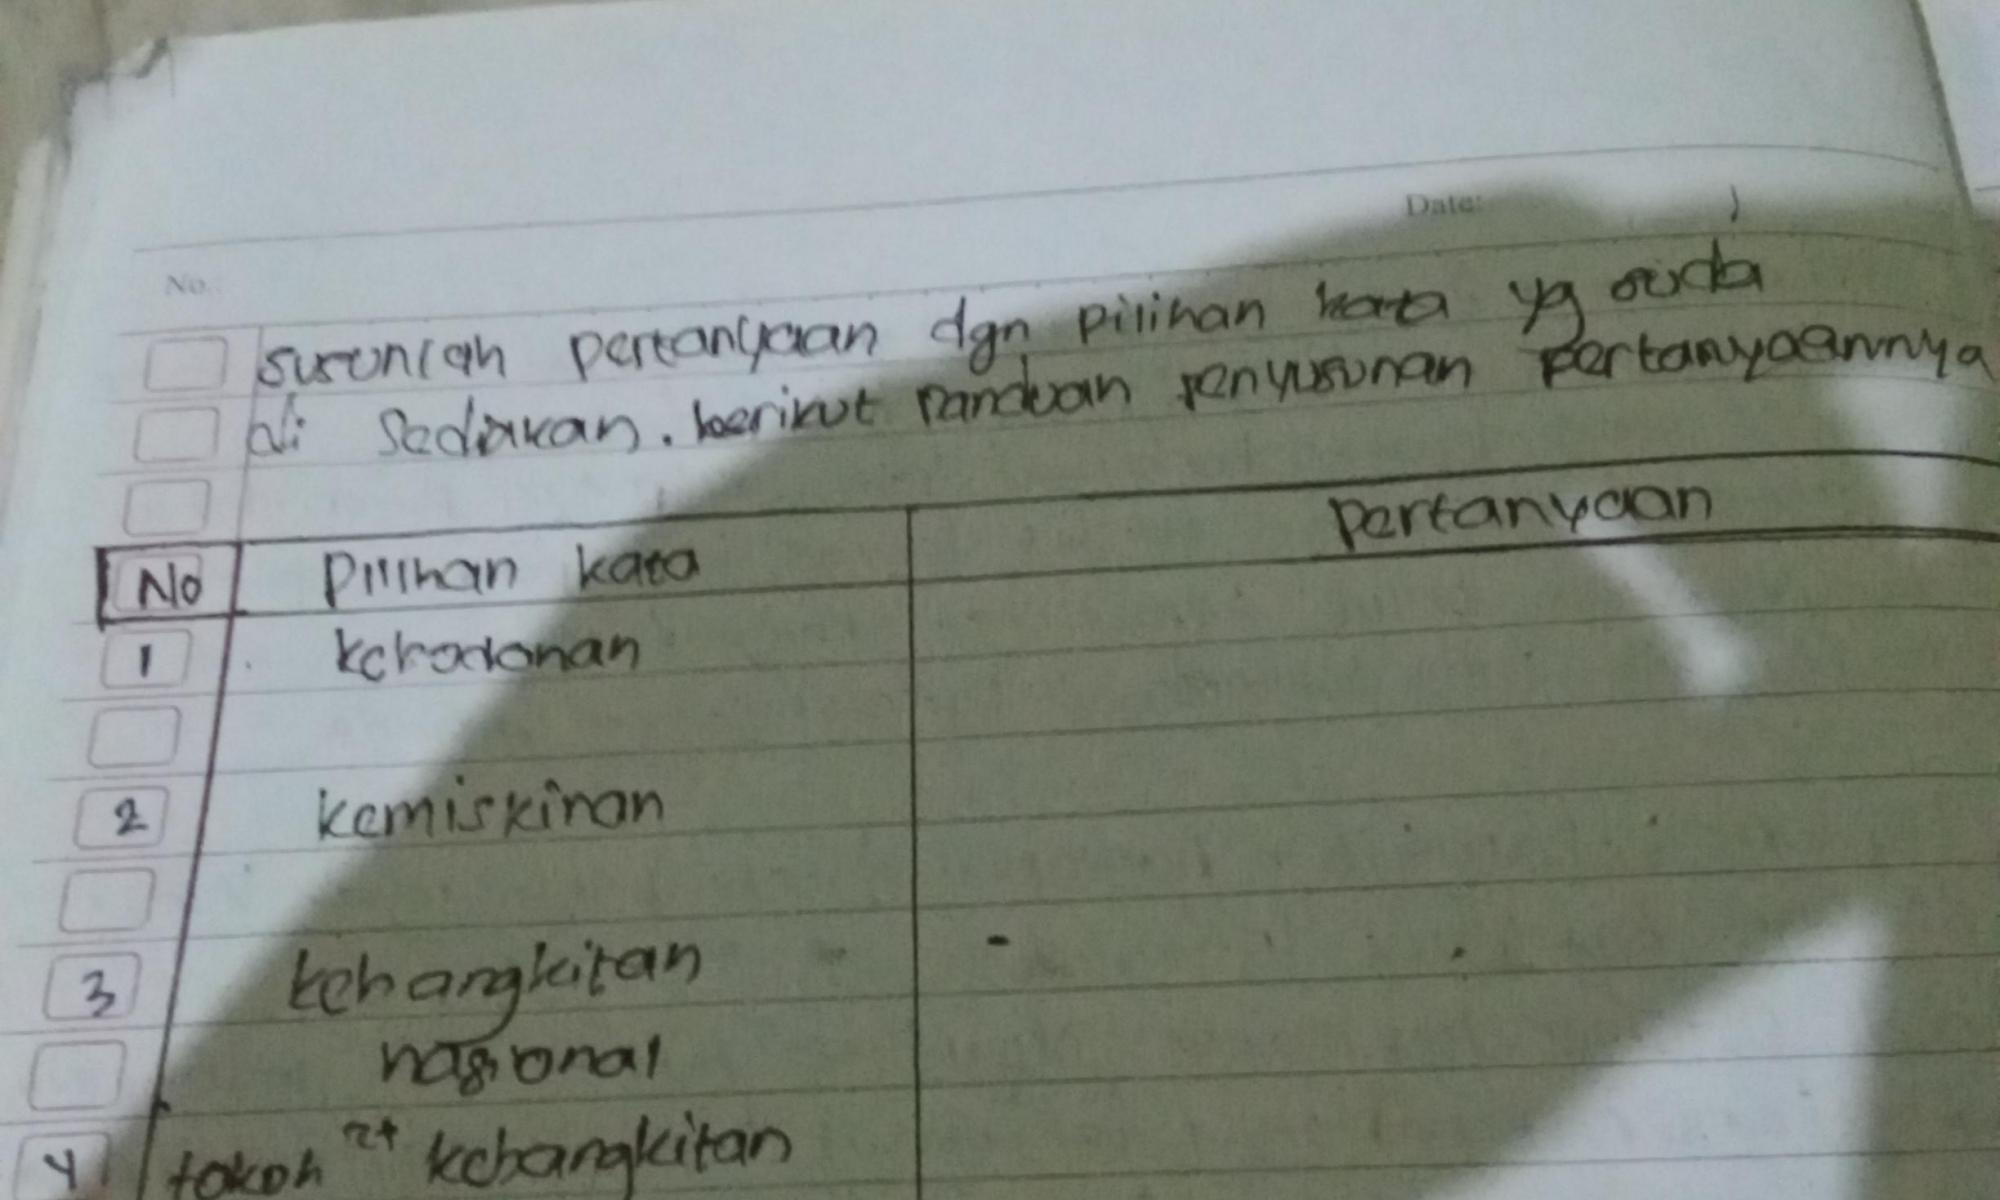 No.
Date:
susunlah pertanyaan dgn pilihan kata yg suda
di sediakan. berikut panduan penyusunan pertanyaannya
No pilihan kata pertanyaan
1 kebodohan
2 kemiskinan
3 kebangkitan
nasional
4 tokoh kebangkitan